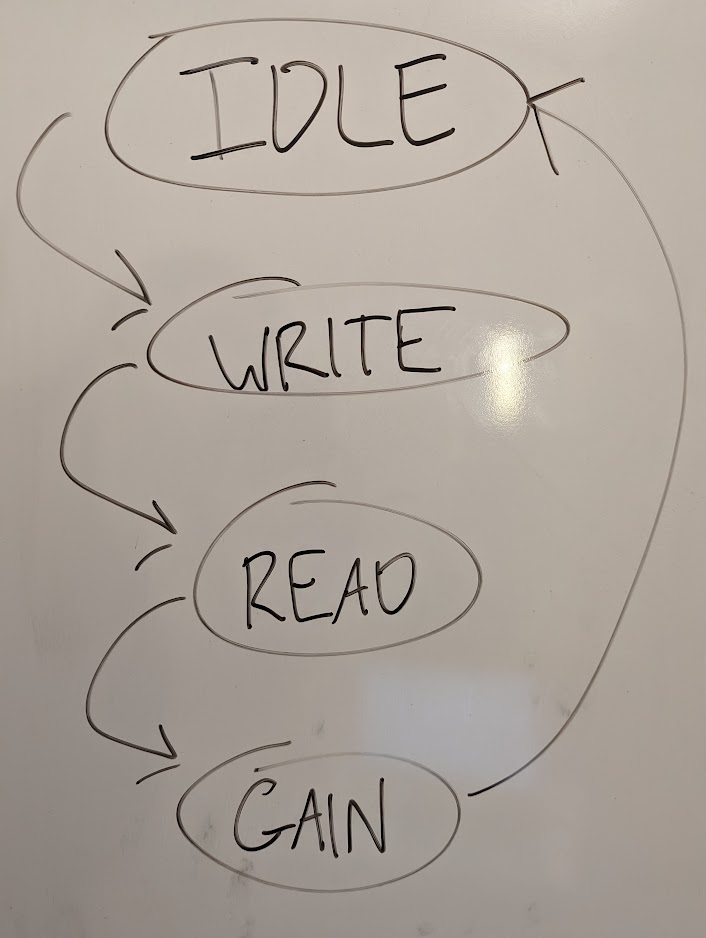 IDLE
WRITE
READ
GAIN